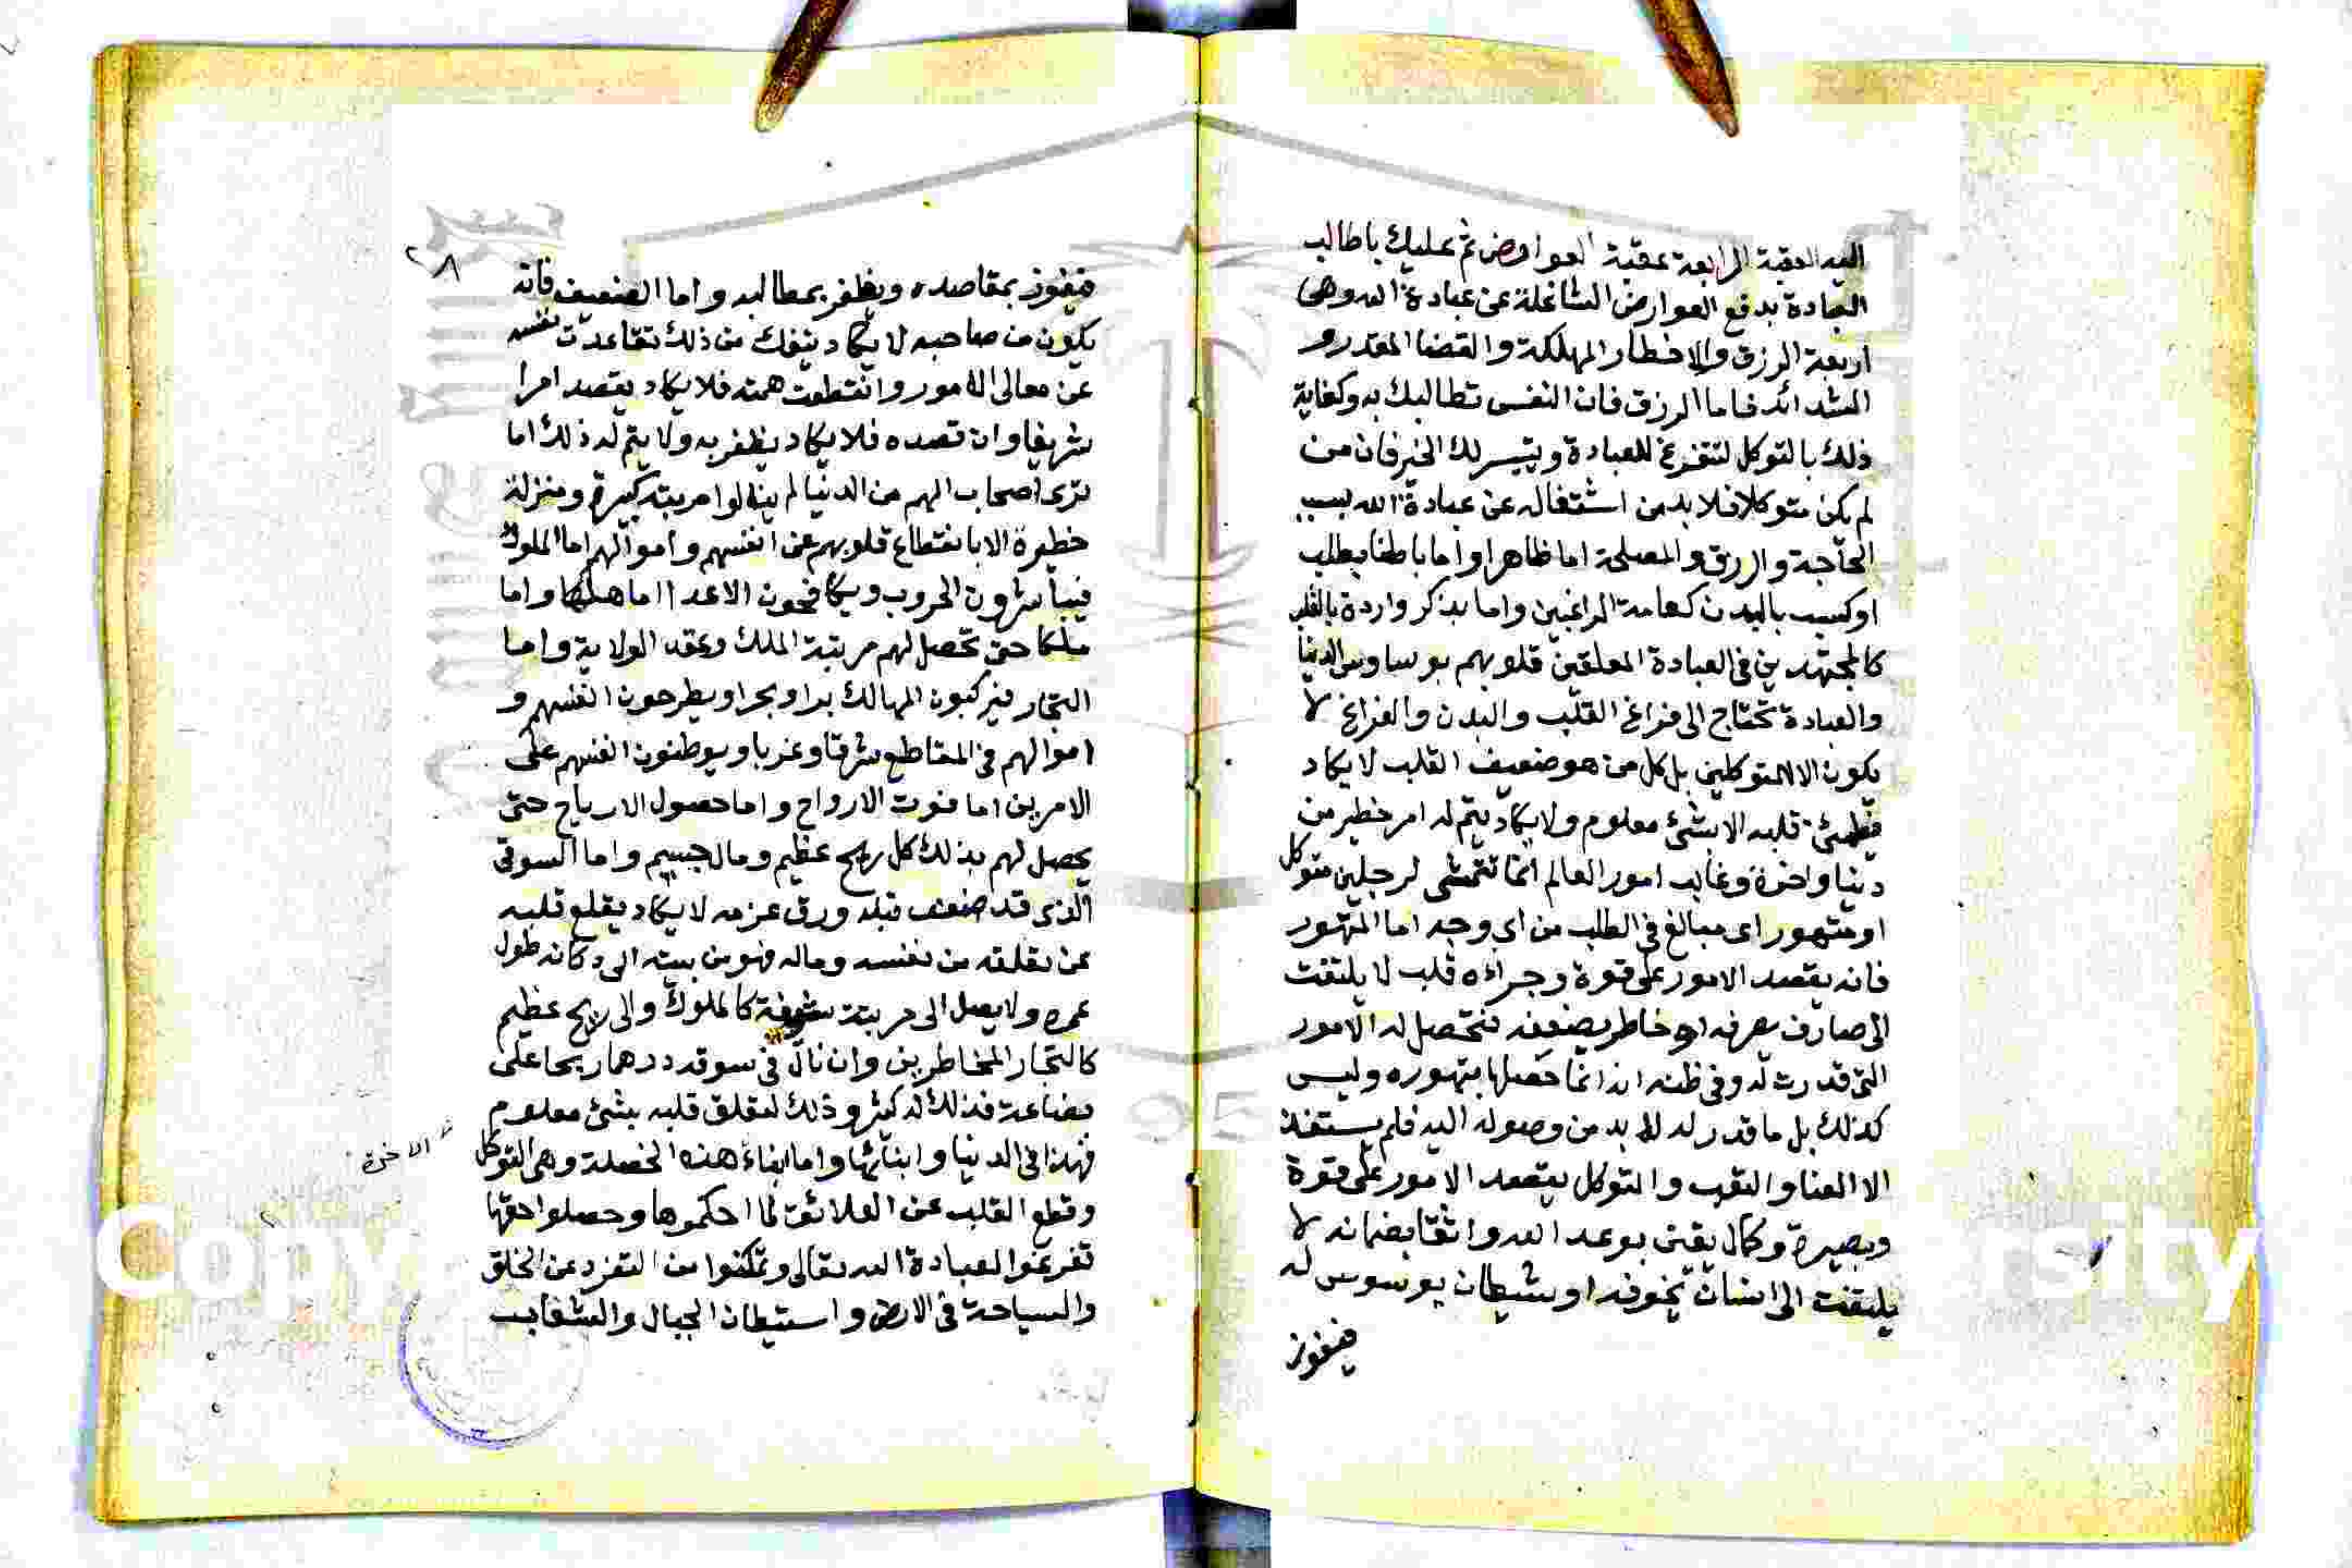 اليه العقبة الرابعة عقبة العوارض ثم عليك يا طالب
العبادة بدفع العوارض الشاغلة عن عبادة الله وهى
اربعة الرزق والاخطار المهلكة والقضا المقدر و
الشدائد فاما الرزق فان النفس تطالبك به وكفاية
ذلك بالتوكل لتتفرغ للعبادة ويتيسر لك الخير فان من
لم يكن متوكلا فلا بد من اشتغاله عن عبادة الله بسبب
الحاجة والرزق والمصلحة اما ظاهرا واما باطنا بطلب
او كسب بالبدن كعامة الراغبين واما بذكر واردة بالقلب
كالمجتهدين فى العبادة المعلقين قلوبهم بوساوس الدنيا
والعبادة تحتاج الى فراغ القلب والبدن والفراغ لا
يكون الا للمتوكلين بل كل من هو ضعيف القلب لا يكاد
يطمئن قلبه الا بشئ معلوم ولا يكاد يتم له امر خطير من
دنيا واخرة وغالب امور العالم انما تتمشى لرجلين متوكل
او متهور اى مبالغ فى الطلب من اى وجه اما المتهور
فانه يقصد الامور على قوة وجراءه قلب لا يلتفت
الى صارف يصرفه او خاطر يضعفه فتحصل له الامور
التى قدرت له وفى ظنه انه انما حصلها بتهوره وليس
كذلك بل ما قدر له لا بد من وصوله اليه فلم يستفد
الا العنا والتعب والتوكل يقصد الامور على قوة
وبصيرة وكمال يقين بوعد الله واثقا بضمانه لا
يلتفت الى انسان يخوفه او شيطان يوسوس له
فيفوز
٢٨
فيفوز بمقاصده ويظفر بمطالبه واما الضعيف فانه
يكون من صاحبه لا يكاد ينفك من ذلك تقاعدت نفسه
عن معالى الامور وانقطعت همته فلا يكاد يقصد امرا
شريفا وان قصده فلا يكاد يظفر به ولا يتم له ذلك اما
ترى اصحاب الهمم من الدنيا لم ينالوا مرتبة كبيرة ومنزلة
خطيرة الا بانقطاع قلوبهم عن انفسهم واموالهم اما الملوك
فيباشرون الحروب ويكافحون الاعدا اما هلكا واما
ملكا حتى تحصل لهم مرتبة الملك وعقد الولاية واما
التجار فيركبون المهالك برا وبحرا ويطرحون انفسهم و
اموالهم فى المقاطع شرقا وغربا ويوطنون انفسهم على
الامرين اما فوت الارواح واما حصول الارباح حتى
يحصل لهم بذلك كل ربح عظيم ومال جسيم واما السوقى
الذى قد ضعف قلبه ورق عزمه لا يكاد يقلع قلبه
عن تعلقه من نفسه وماله فهو من بيته الى دكانه طول
عمره ولا يصل الى مرتبة شريفة كالملوك والى ربح عظيم
كالتجار المخاطرين وان نال فى سوقه درهما ربحا على
بضاعة فذلك له كثير وذلك لتعلق قلبه بشئ معلوم
فهذا فى الدنيا وابنائها واما ابناء هذه الخصلة وهى التوكل
الاخرة
وقطع القلب عن العلائق لما احكموها وحصلوا حقها
تفرغوا لعبادة الله تعالى وتمكنوا من التفرد عن الخلق
والسياحة فى الارض واستيطان الجبال والشعاب